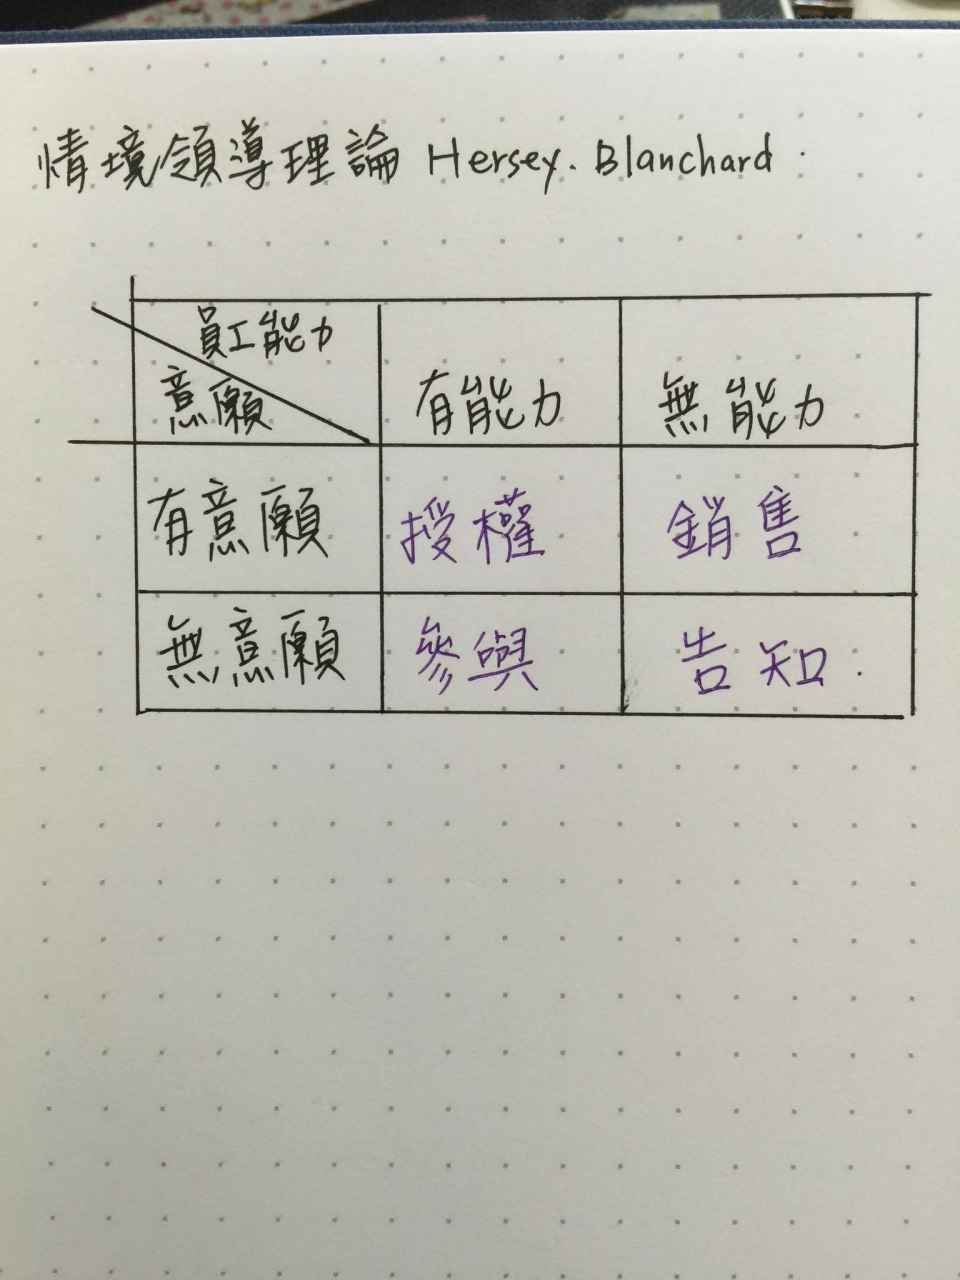 情境領導理論 Hersey. Blanchard.
員工能力
意願
有能力 無能力
有意願 授權 銷售
無意願 參與 告知.